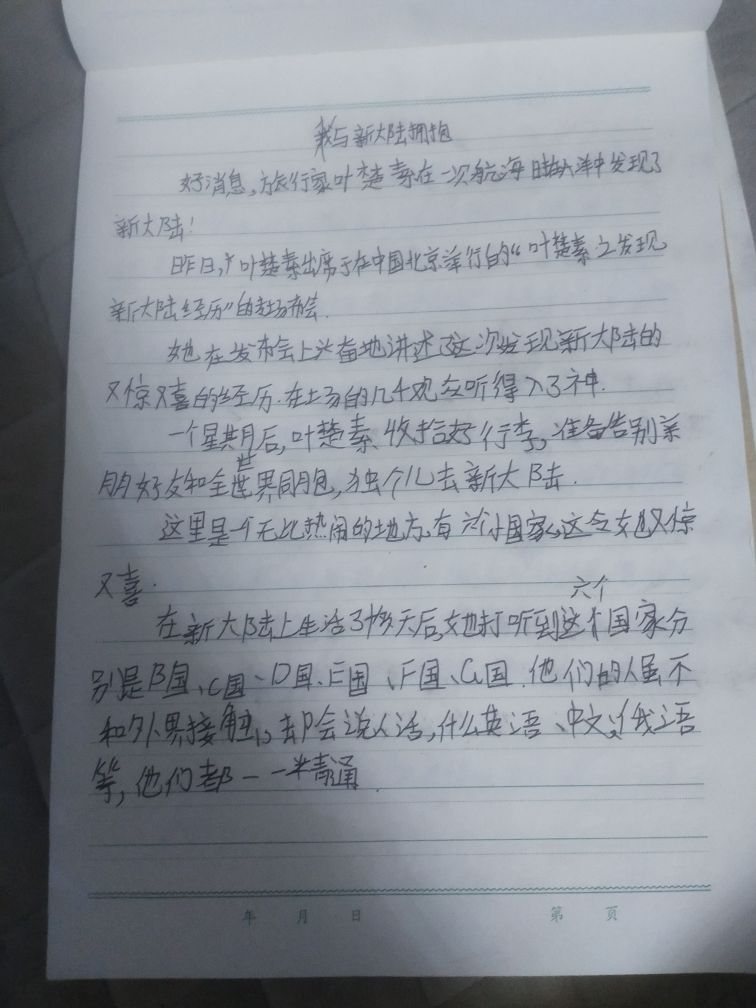 我与新大陆拥抱
好消息,旅行家叶楚素在一次航海时在大洋中发现了
新大陆!
昨日,叶楚素出席于在中国北京举行的“叶楚素之发现
新大陆经历”的发布会.
她在发布会上兴奋地讲述了这次发现新大陆的
又惊又喜的经历.在场的几千观众听得入了神.
一个星期后,叶楚素收拾好行李,准备告别亲
朋好友和全世界同胞,独个儿去新大陆.
这里是一个无比热闹的地方,有六个小国家,这令她又惊
又喜.
六个
在新大陆上生活了多天后,她打听到这个国家分
别是B国、C国、D国、E国、F国、G国.他们的人虽不
和外界接触,却会说人话,什么英语、中文、俄语
等,他们都一一精通.
年 月 日 第 页